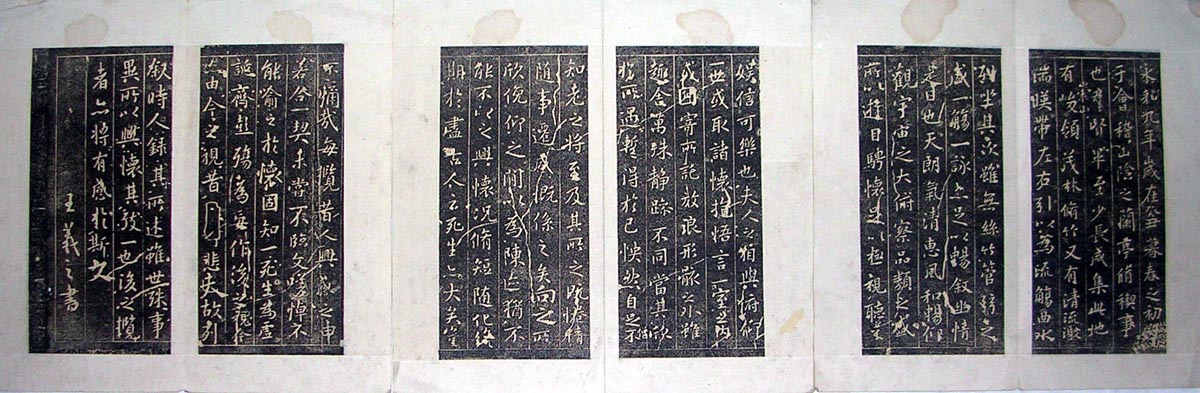 永和九年歲在癸丑暮春之初會
于會稽山陰之蘭亭脩禊事
也羣賢畢至少長咸集此地
有崇山峻領茂林脩竹又有清流激
湍暎帶左右引以為流觴曲水
列坐其次雖無絲竹管弦之
盛一觴一詠亦足以暢叙幽情
是日也天朗氣清惠風和暢仰
觀宇宙之大俯察品類之盛
所以遊目騁懷足以極視聽之
娛信可樂也夫人之相與俯仰
一世或取諸懷抱悟言一室之內
或因寄所託放浪形骸之外雖
趣舍萬殊靜躁不同當其欣
於所遇暫得於己怏然自足不
知老之將至及其所之既惓情
隨事遷感慨係之矣向之所
欣俛仰之閒以為陳迹猶不
能不以之興懷況脩短隨化終
期於盡古人云死生亦大矣豈
不痛哉每攬昔人興感之由
若合一契未嘗不臨文嗟悼不
能喻之於懷固知一死生為虛
誕齊彭殤為妄作後之視今
亦由今之視昔悲夫故列
叙時人錄其所述雖世殊事
異所以興懷其致一也後之攬
者亦將有感於斯文
王羲之書